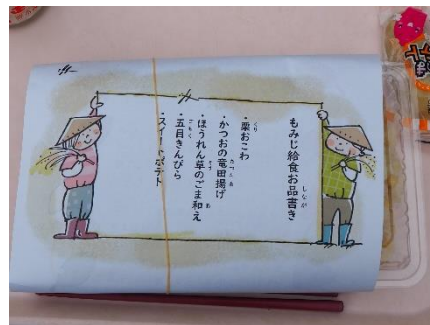 もみじ給食お品書き
・栗おこわ
・かつおの竜田揚げ
・ほうれん草のごま和え
・五目きんぴら
スイートポテト